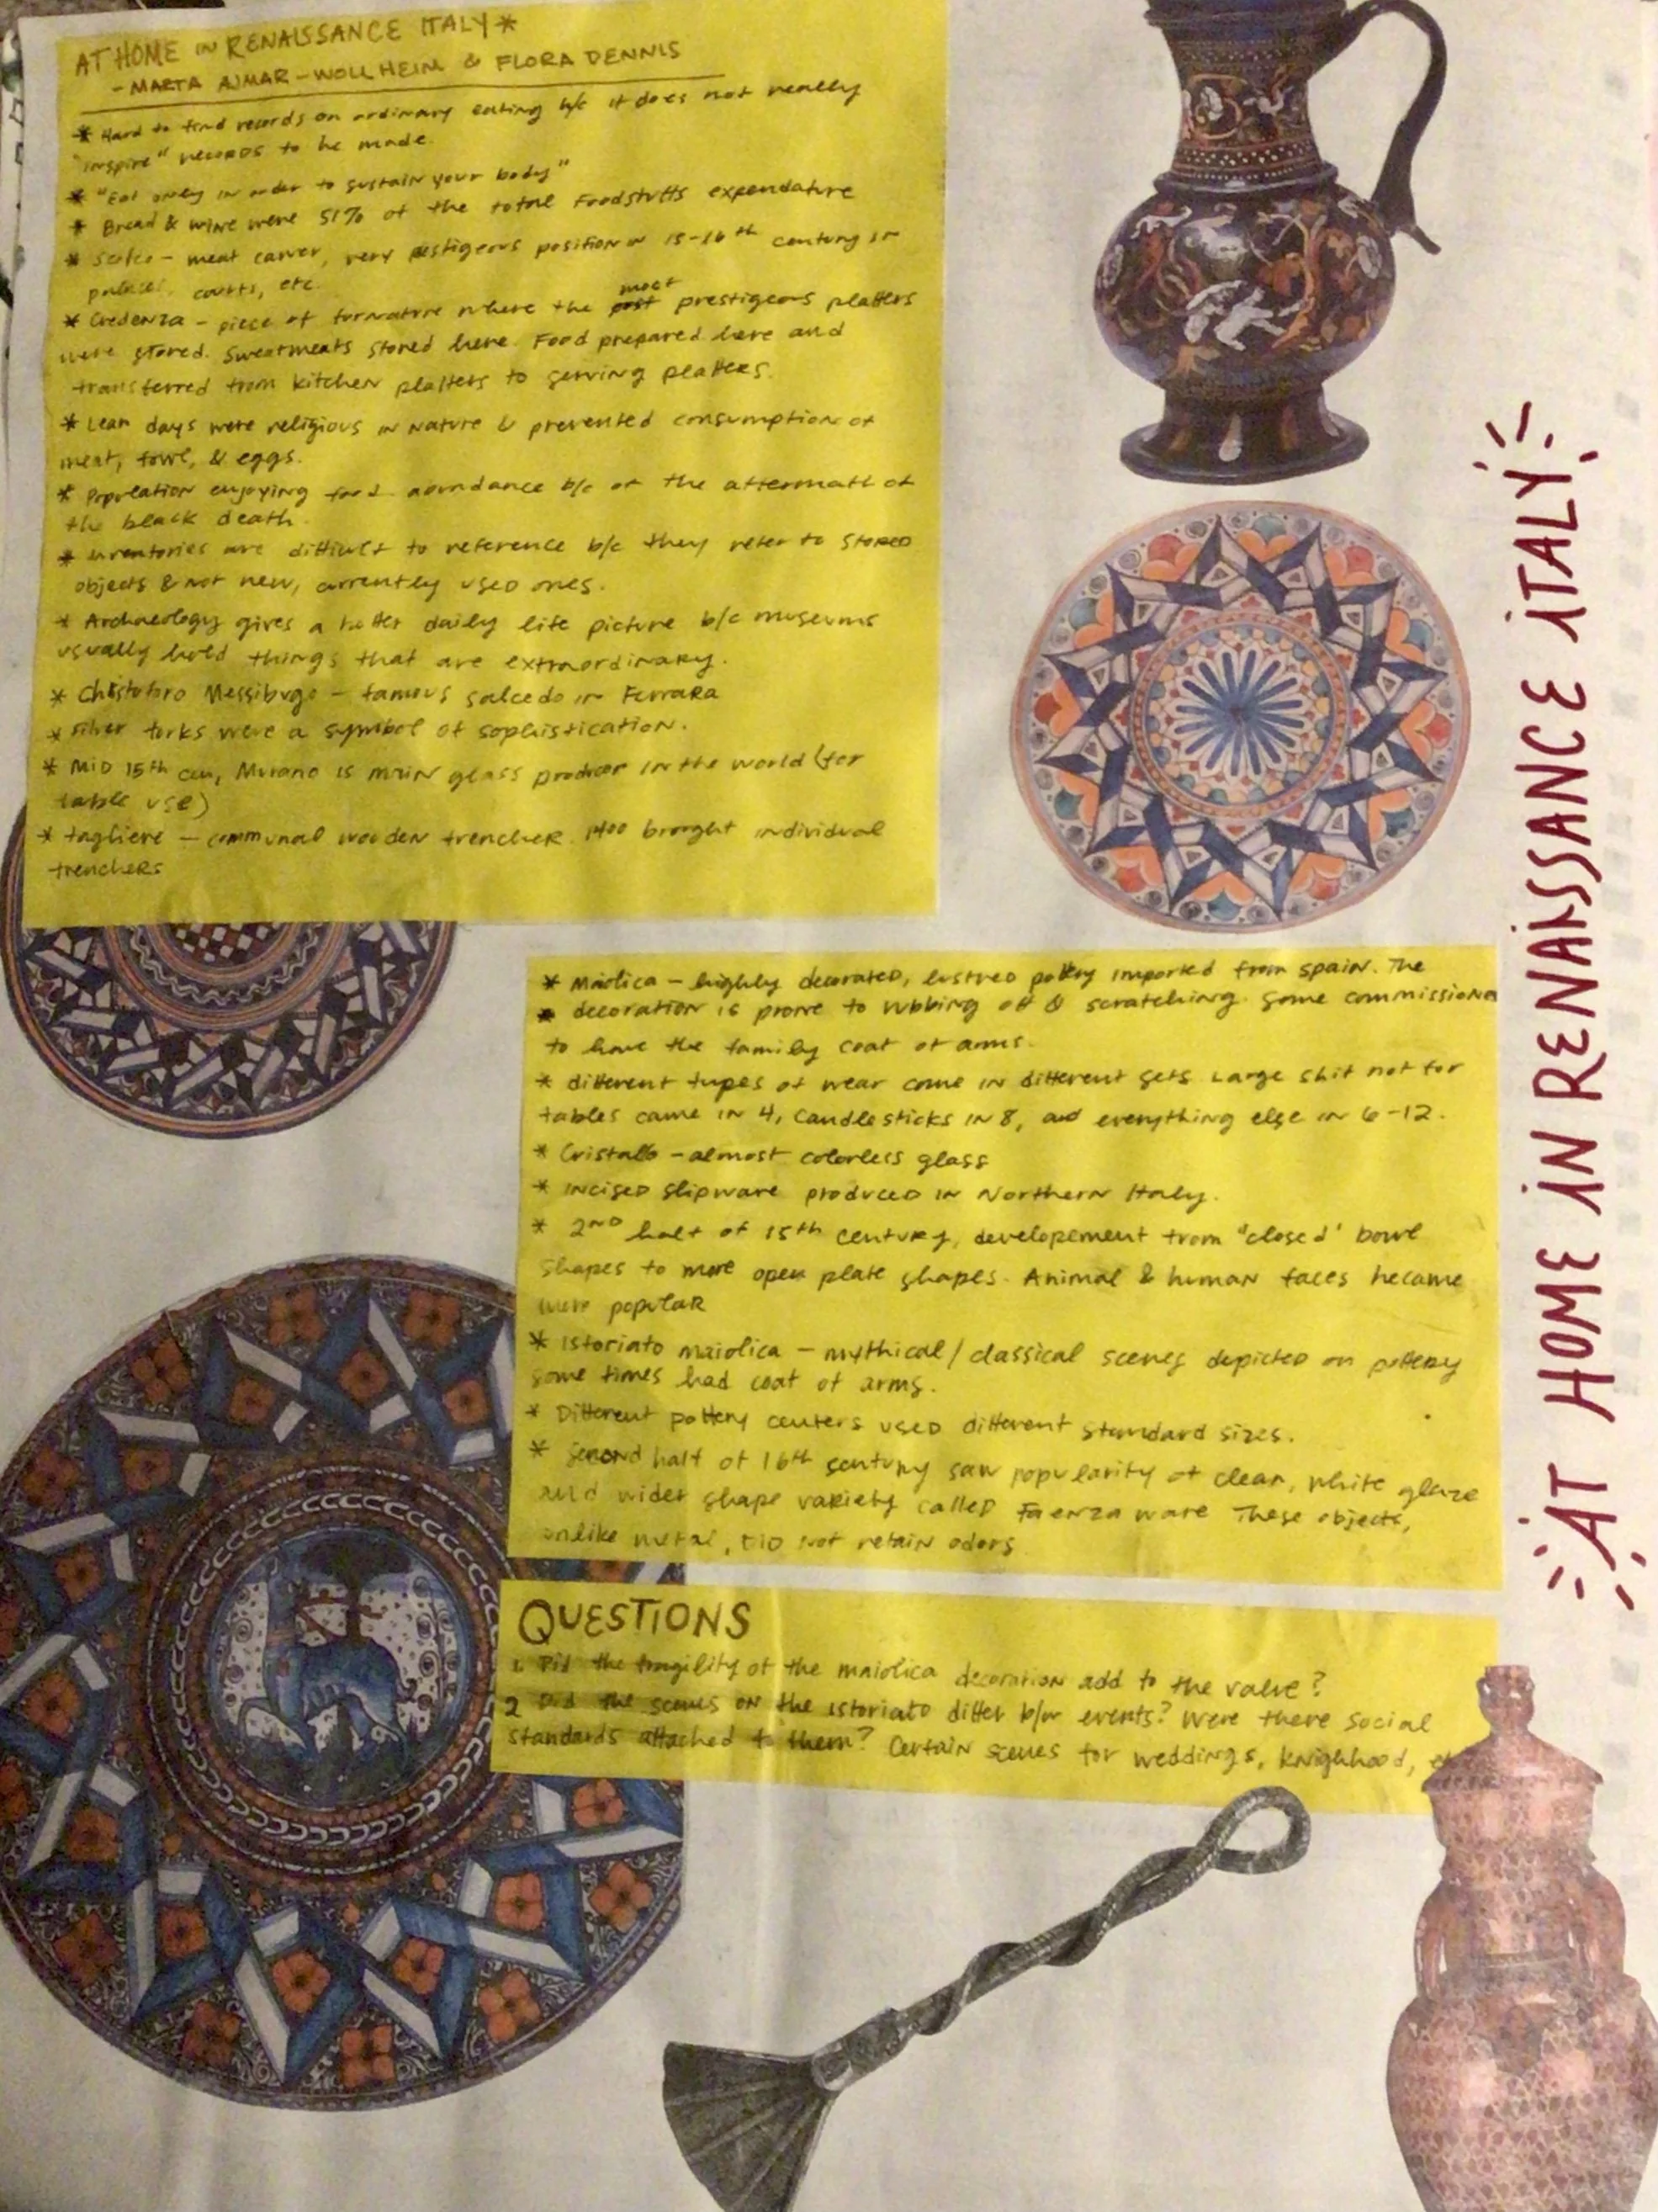 AT HOME IN RENAISSANCE ITALY *
- MARTA AJMAR-WOLLHEIM & FLORA DENNIS
* Hard to find records on ordinary eating b/c it does not really
"inspire" records to be made.
* "Eat only in order to sustain your body"
* Bread & wine were 51% of the total Foodstuffs expendature
* Scalco - meat carver, very pestigeous position in 15-16th century in
palaces, courts, etc.
* Credenza - piece of furnature where the most prestigeous platters
were stored. Sweatmeats stored here. Food prepared here and
transferred from kitchen platters to serving platters.
* Lean days were religious in nature & prevented consumption of
meat, fowl, & eggs.
* Population enjoying food abundance b/c of the aftermath of
the black death.
* inventories are difficult to reference b/c they refer to stored
objects & not new, currently used ones.
* Archaeology gives a better daily life picture b/c museums
usually hold things that are extraordinary.
* Christoforo Messibugo - famous salcedo in Ferrara
* silver forks were a symbol of sophistication.
* Mid 15th cen, Murano is main glass producer in the world (for
table use)
* tagliere - communal wooden trencher. 1400 brought individual
trenchers
* Maiolica - highly decorated, lustred pottery imported from spain. The
* decoration is prone to rubbing off & scratching. Some commissioned
to have the family coat of arms.
* different types of wear come in different sets. Large shit not for
tables came in 4, candlesticks in 8, and everything else in 6-12.
* Cristallo - almost colorless glass
* incised slipware produced in Northern Italy.
* 2nd half of 15th century, developement from "closed" bowl
shapes to more open plate shapes. Animal & human faces became
more popular
* Istoriato maiolica - mythical/classical scenes depicted on pottery
some times had coat of arms.
* Different pottery centers used different standard sizes.
* Second half of 16th century saw popularity of clear, white glaze
and wider shape variety called Faenza ware. These objects,
unlike metal, did not retain odors
QUESTIONS
1. Did the fragility of the maiolica decoration add to the value?
2 Did the scenes on the istoriato differ b/w events? Were there social
standards attached to them? Certain scenes for weddings, knighhood, etc
AT HOME IN RENAISSANCE ITALY